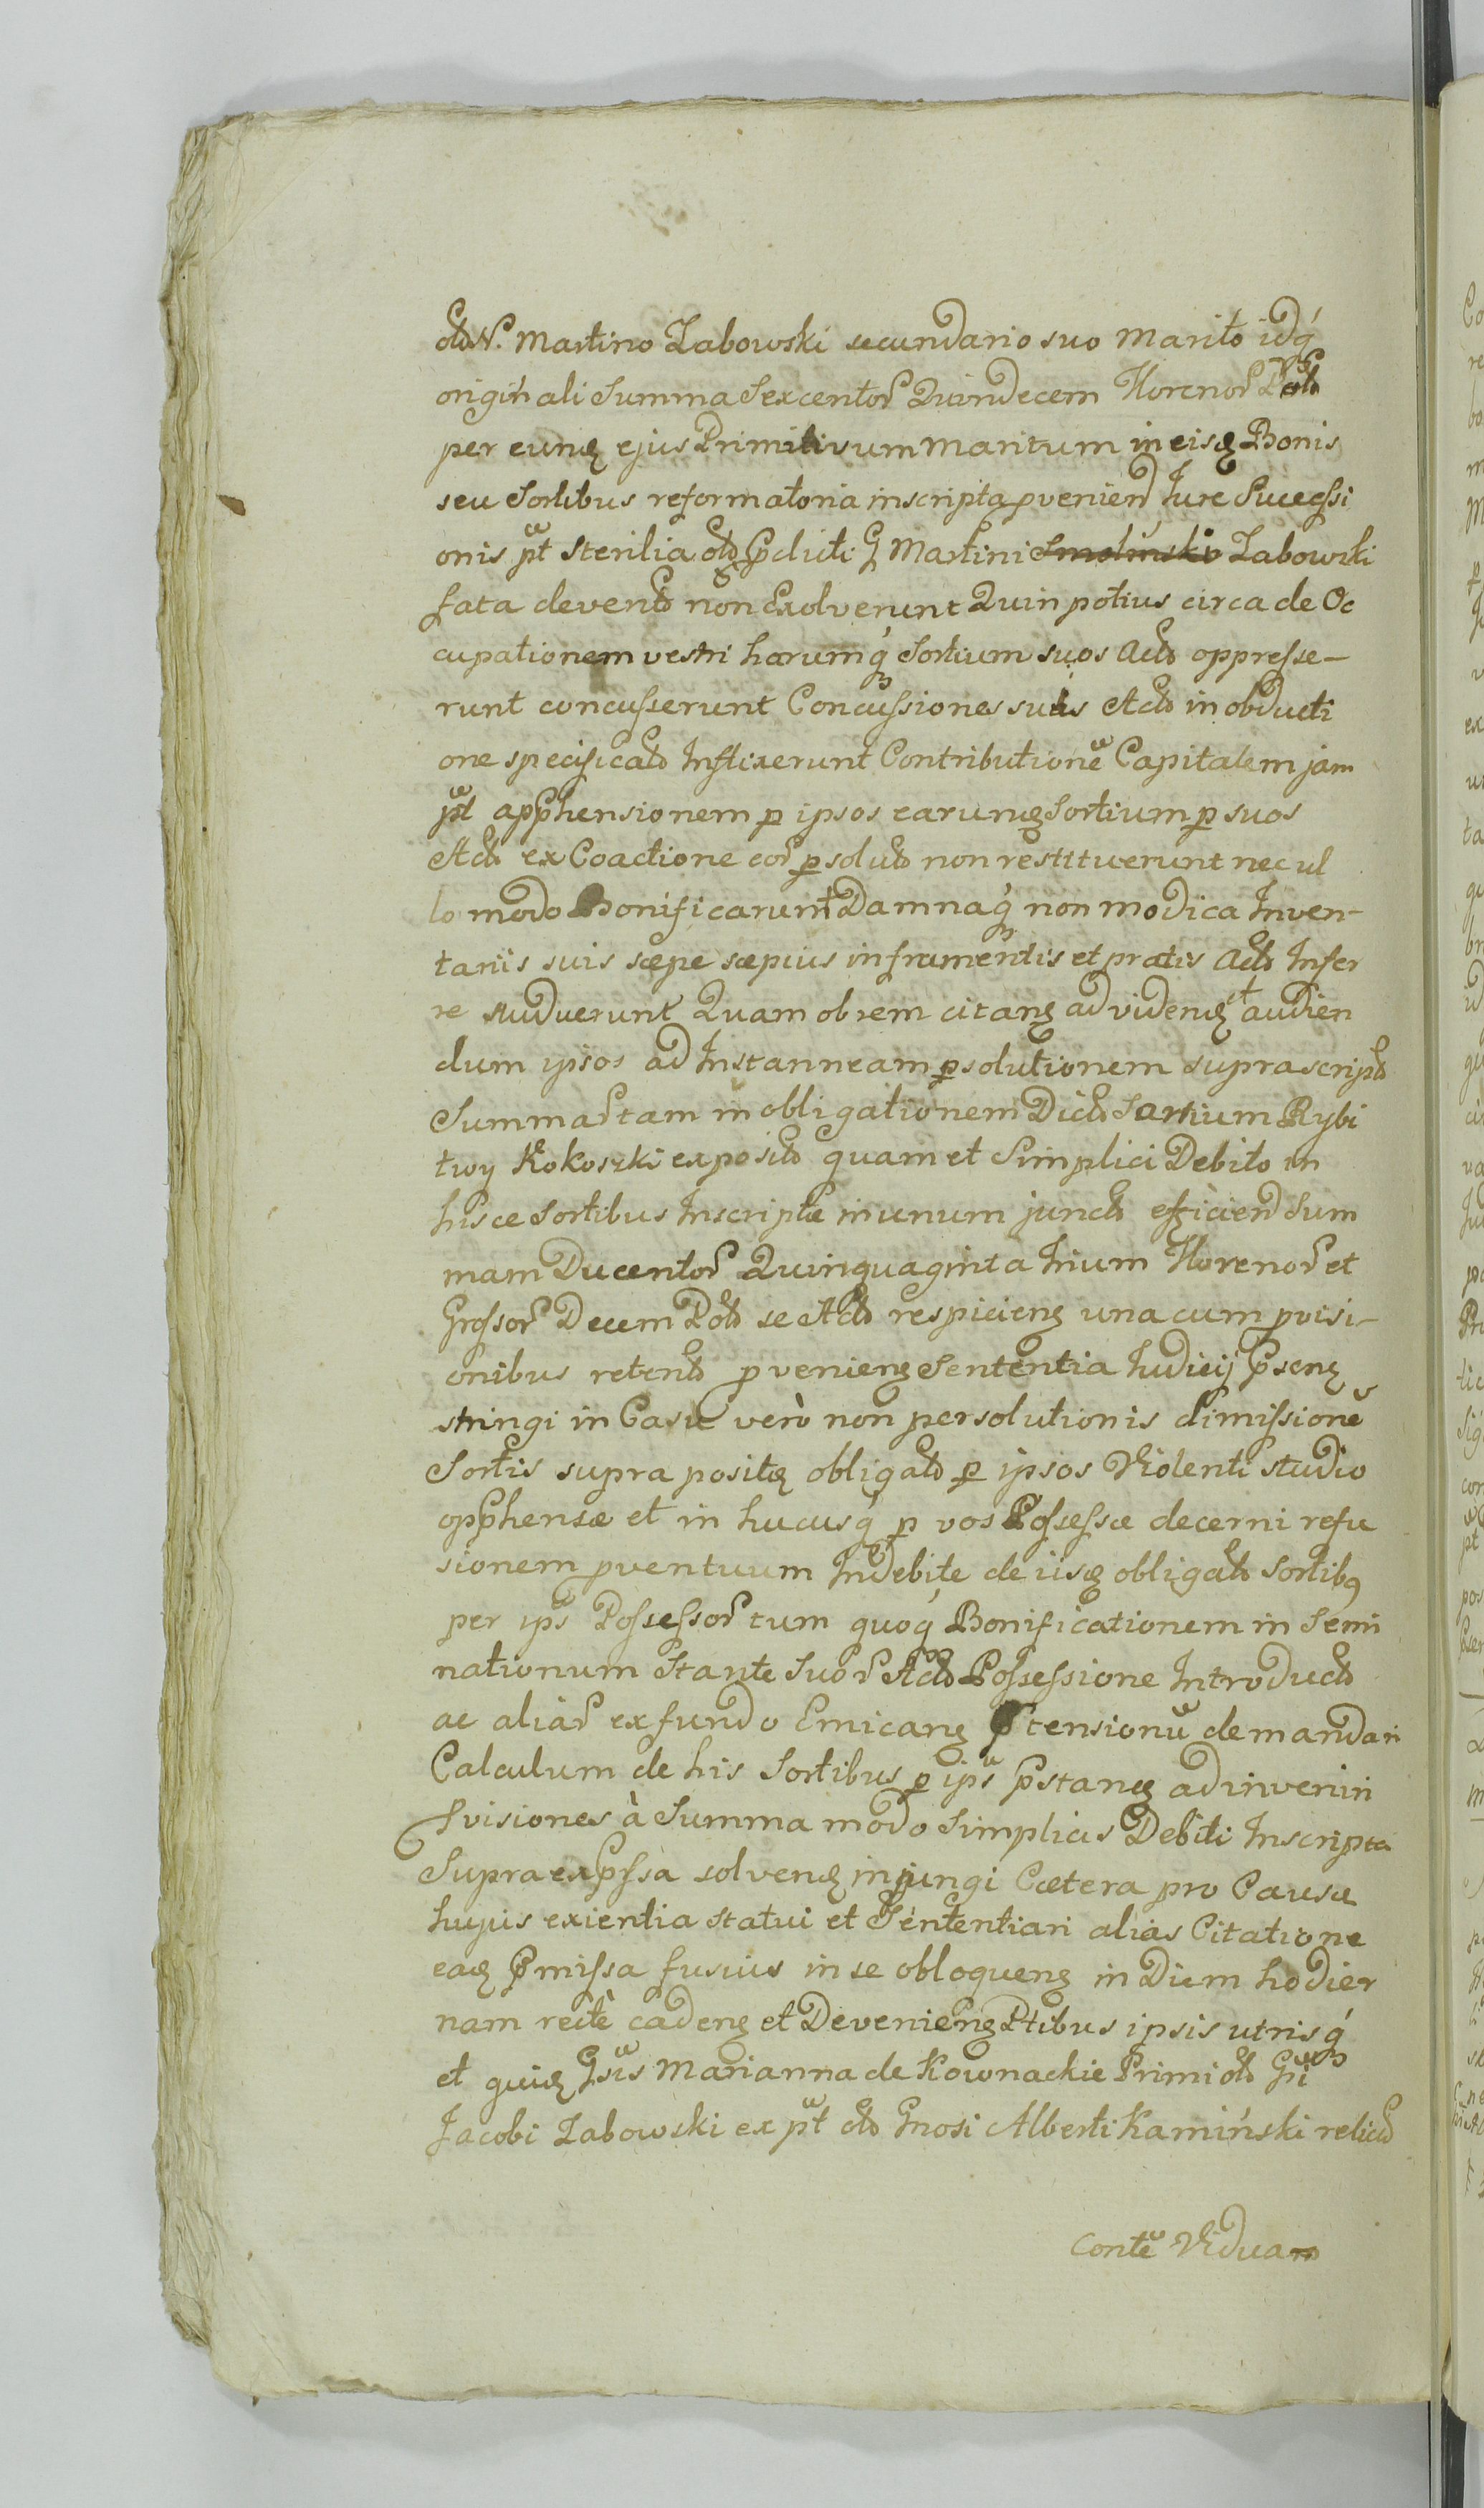 olỡ N. Martino Zabowski secundario suo Marito idq́
originali Summa Sexcentor Quindecem Florenor Pol
per eunđ ejus Primitivum Maritum in eisđ Bonis
seu Sortibus reformatoria inscripta pveniend Jure Successi
onis pt sterilia olỡ Pdicti G Martini Zabowski
fata devent non Exolverunt Quin potius circa de Oc
cupationem vestri harumq́ Sortium suos Act oppresse-
runt concusserunt Concussiones suis Act in obducti
one specificat Inflixerunt Contributionē Capitalem jam
pt apphensionem p ipsos earunđ Sortium p suos
Act ex Coactione eor psolut non restituerunt nec ul
lo modo Bonificarunt Damnaq́ non modica Inven-
tariis suis sæpe sæpius in frumentis et pratis Act Infer
re studuerunt Quam ob rem citanđ ad videnđ et audien
dum ipsos ad Instanneam psolutionem suprascript
Summar tam in obligationem Dict Sortium Rybi
twy Kokoszki exposit quam et Simplici Debito in
hisce Sortibus Inscriptæ in unum junct efficiend Sum
mam Ducentor Quinquaginta trium Florenor et
Grossor Decem Pol se Act respicienđ una cum pvisi-
onibus retent pvenienđ Sententia Judicij Psenđ
stringi in Casu verò non persolutionis dimissionē
Sortis supra positæ obligat p ipsos Violenti studio
opphensæ et in hucusq́ p vos Possessæ decerni refu
sionem pventuum Indebite de iisđ obligat Sortibq
per ips Possessor tum quoq́ Bonificationem in Semi
nationum Stante Suor Act Possessione Introduct
ac aliar ex fundo Emicanđ Ptensionū demandari
Calculum de his Sortibus p ips pstanđ adinveniri
Pvisiones à Summa modo Simplicis Debiti Inscripta
Supra expssa solvenđ injungi Cætera pro Causæ
hujus exientia statui et Sententiari alias Citatione
eađ Pmissa fusius in se obloquenđ in Diem hodier
nam rectè cadenđ et Devenienđ Ptibus ipsis utrisq́
et quiđ Gsis Marianna de Kownackie Primi olỡ Gsi
Jacobi Zabowski ex pt olỡ Gnosi Alberti Kamiński relict
contē Viduam